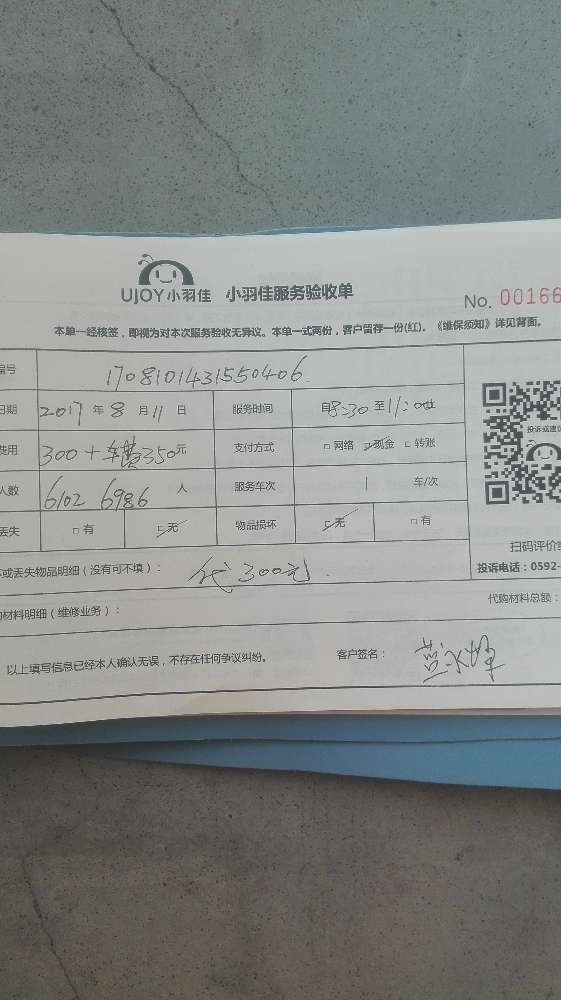 UJOY小羽佳 小羽佳服务验收单
No. 00166
本单一经核签，即视为对本次服务验收无异议。本单一式两份，客户留存一份(红)。《维保须知》详见背面。
编号 1708101431550406
日期 2017 年 8 月 11 日 服务时间 自8:30 至 11:00止
费用 300+车费350元 支付方式 □ 网络 ☑ 现金 □ 转账
人数 6102 6986 人 服务车次 1 车/次
丢失 □ 有 ☑ 无 物品损坏 ☑ 无 □ 有
投诉或建议
扫码评价
或丢失物品明细（没有可不填）： 代300元.
投诉电话：0592-
材料明细（维修业务）：
代购材料总额：
以上填写信息已经本人确认无误，不存在任何争议纠纷。 客户签名：